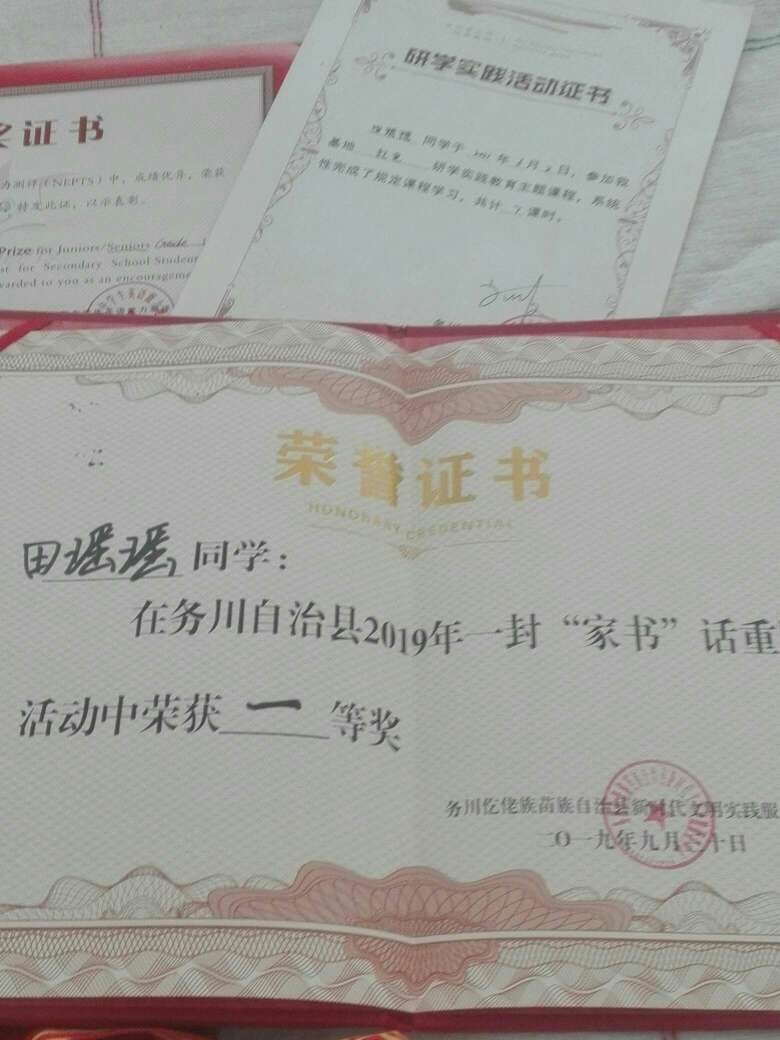 证书
成绩优异，荣获
特发此证，以示表彰。
Prize for Juniors/Seniors Grade
for Secondary School Student
warded to you as an encourageme
研学实践活动证书
同学于 年 月 日，参加我
基地 红色 研学实践教育主题课程，系统
性完成了规定课程学习，共计 7 课时。
荣誉证书
HONORARY CREDENTIAL
田瑶瑶同学：
在务川自治县2019年一封“家书”话重
活动中荣获一等奖
务川仡佬族苗族自治县新时代文明实践服
二〇一九年九月三十日